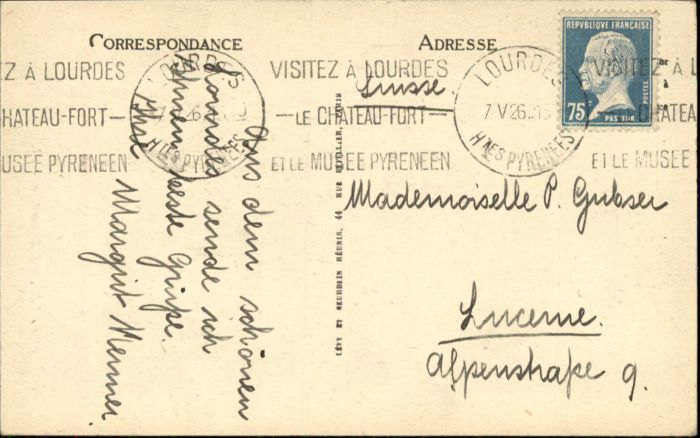 CORRESPONDANCE
ADRESSE
VISITEZ À LOURDES
LE CHATEAU-FORT
ET LE MUSEE PYRENEEN
LOURDES
7 V 26
Htes PYRENEES
REPUBLIQUE FRANÇAISE
POSTES
75c
PASTEUR
EZ À LOURDES
CHATEAU-FORT
MUSEE PYRENEEN
LOURDES
7
26
Htes PYRENEES
VISITEZ À
LE CHATEAU-
ET LE MUSEE
Aus dem schönen
Lourdes sende ich
Ihnen beste Grüße.
Ihre
Margrit
LÉVY ET NEURDEIN RÉUNIS, 44 RUE LETELLIER, PARIS
Suisse
Mademoiselle P. Gubser
Lucerne.
Alpenstraße 9.